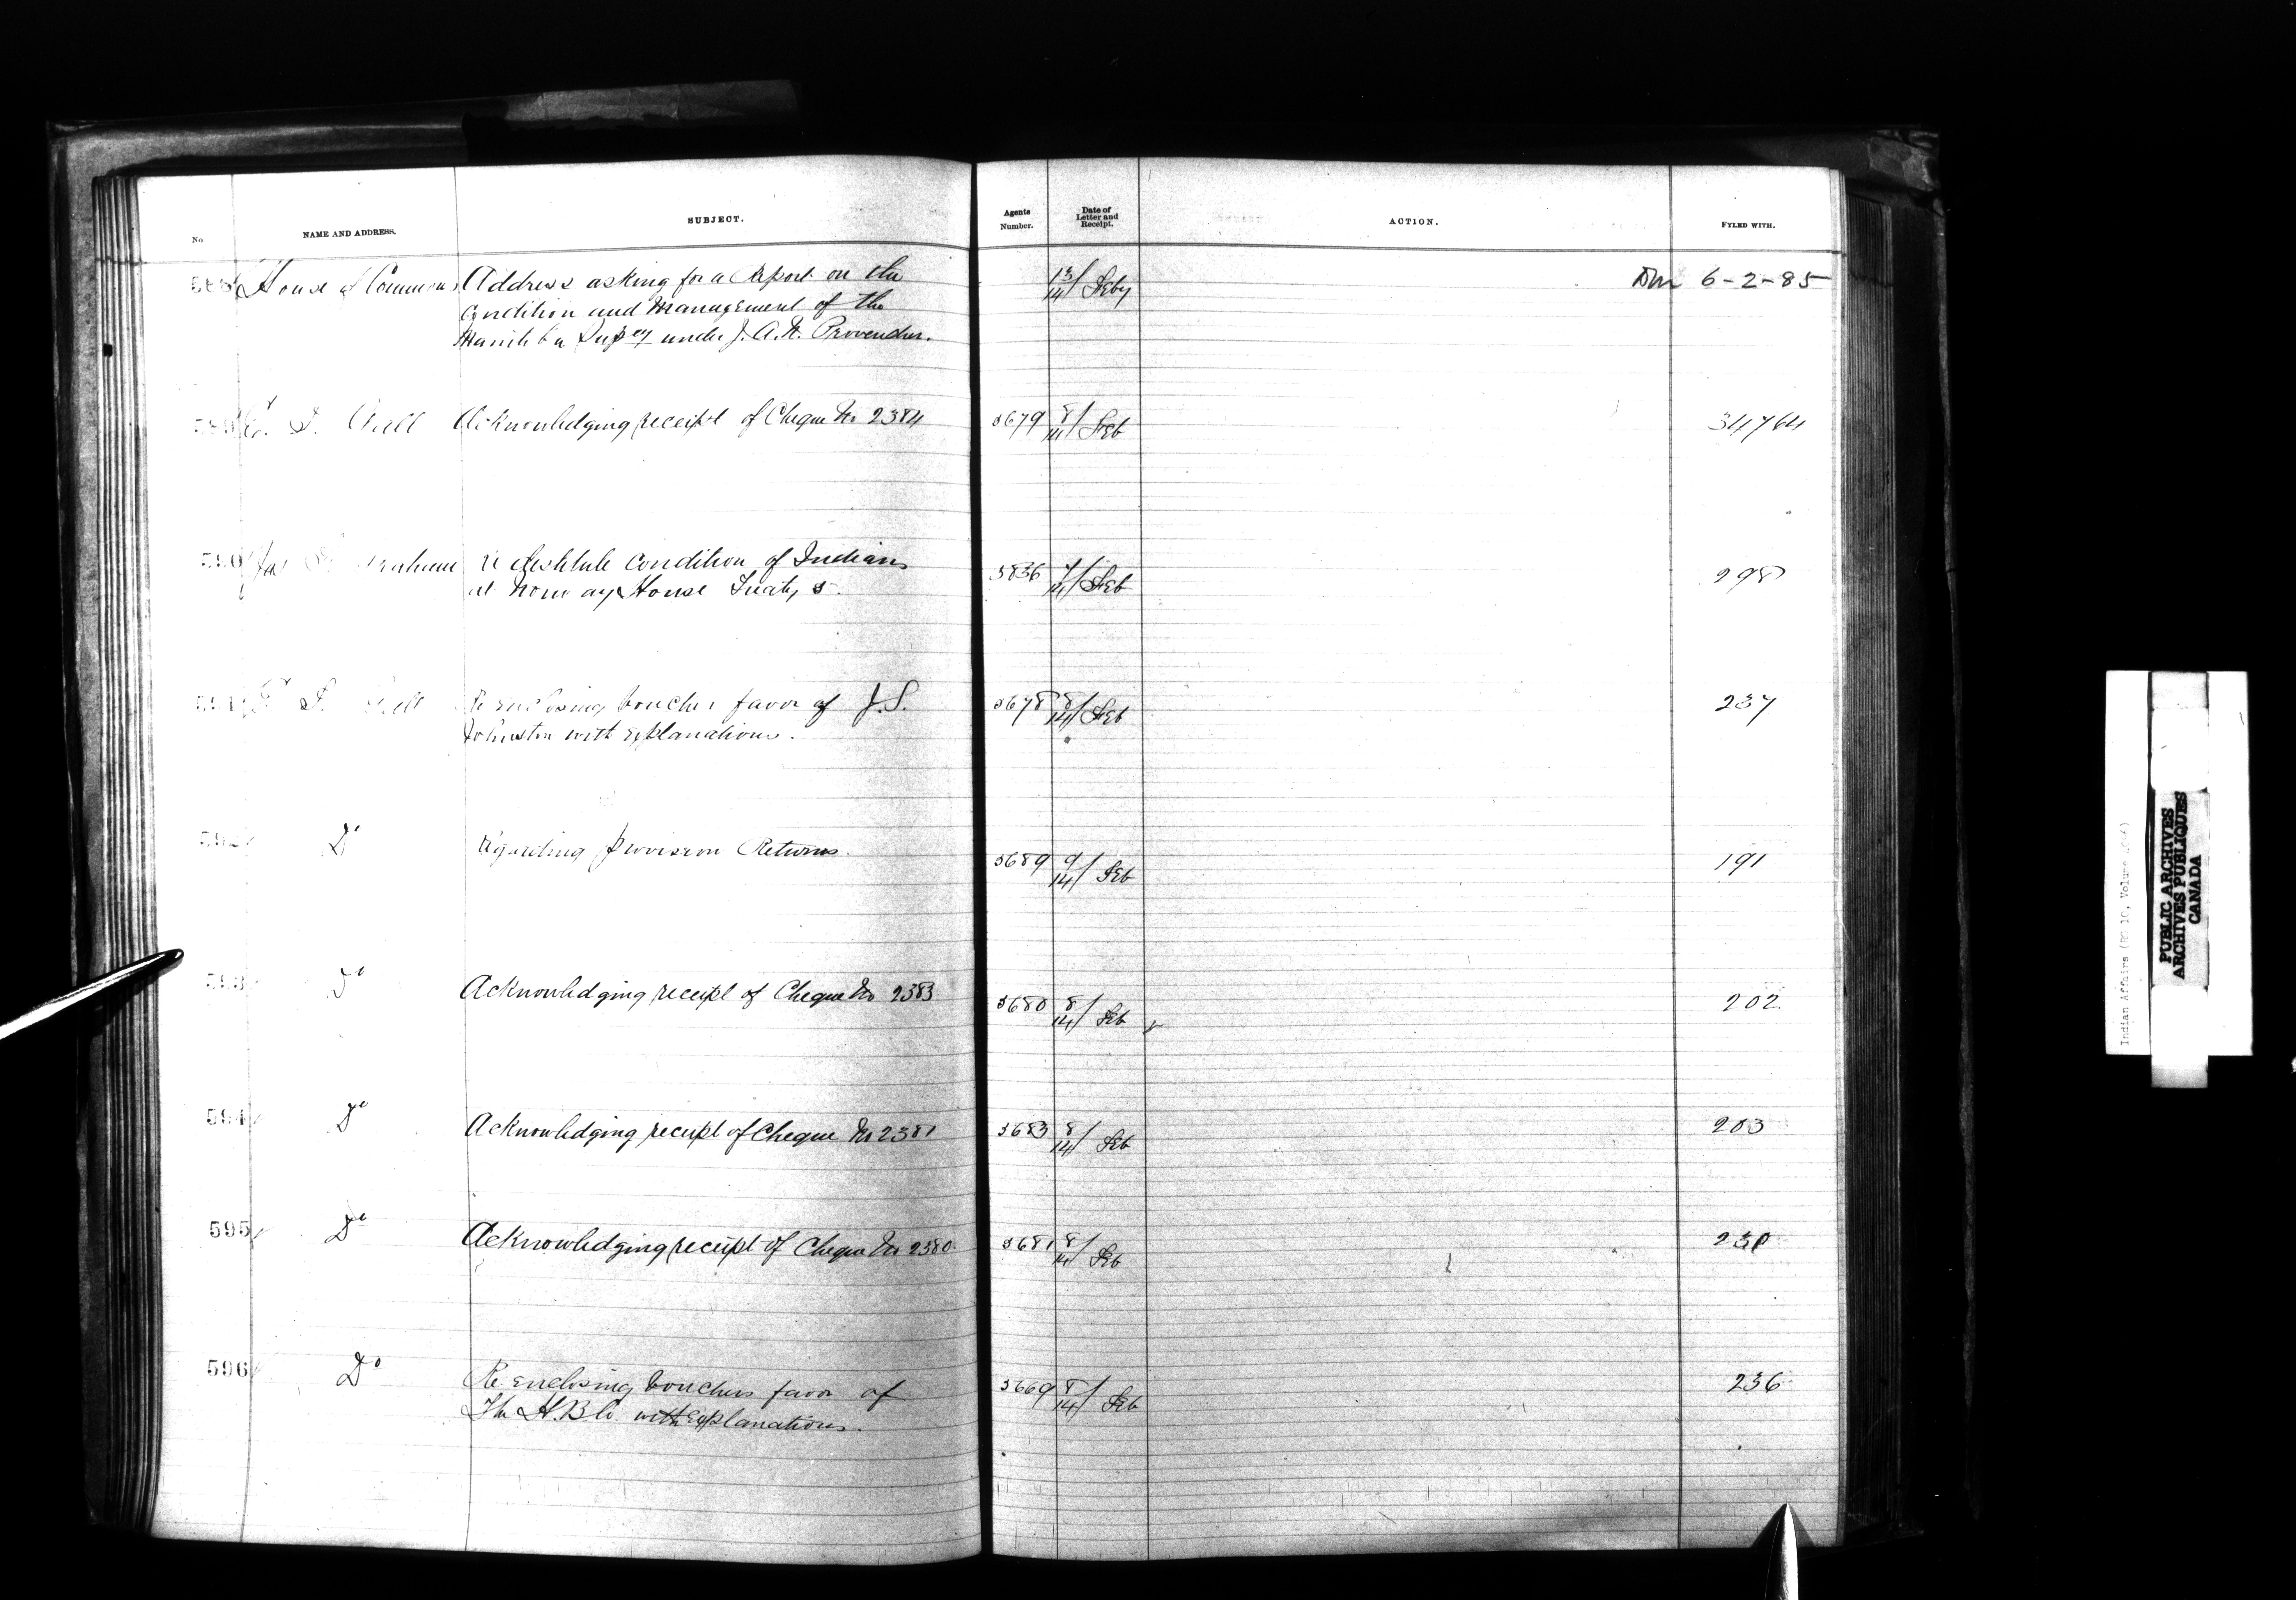 No NAME AND ADDRESS. SUBJECT. Agents Number. Date of Letter and Receipt. ACTION. FYLED WITH.
588 House of Commons Address asking for a Report on the 13/14 Feby 6-2-85
Condition and Management of the
Manitoba Supcy under J. A. N. Provencher.
589 Acknowledging receipt of Cheque No 2384 5679 8/14 Feb 34764
590 Jas Graham re destitute condition of Indians 5836 7/14 Feb 298
at Norway House Treaty 5.
591 Re enclosing voucher favor of J.S. 5678 8/14 Feb 237
Johnston with explanations.
592 Do Regarding provision Returns. 5689 9/14 Feb 191
593 Do Acknowledging receipt of Cheque No 2383 5680 8/14 Feb 202
594 Do Acknowledging receipt of Cheque No 2381 5683 8/14 Feb 203
595 Do Acknowledging receipt of Cheque No 2380. 5681 8/14 Feb
596 Do Re enclosing vouchers favor of 5669 8/14 Feb 236
The H.B Co. with explanations.
Indian Affairs (RG 10, Volume
PUBLIC ARCHIVES
ARCHIVES PUBLIQUES
CANADA